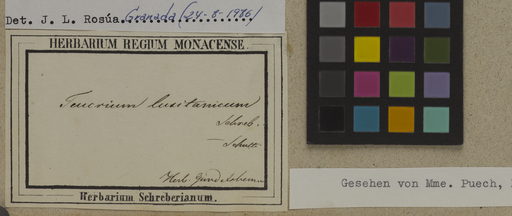 Det. J. L. Rosúa. Granada (24-8-1986)
HERBARIUM REGIUM MONACENSE.
Teucrium lusitanicum
Schreb.
Herb.
Herbarium Schreberianum.
Gesehen von Mme. Puech,